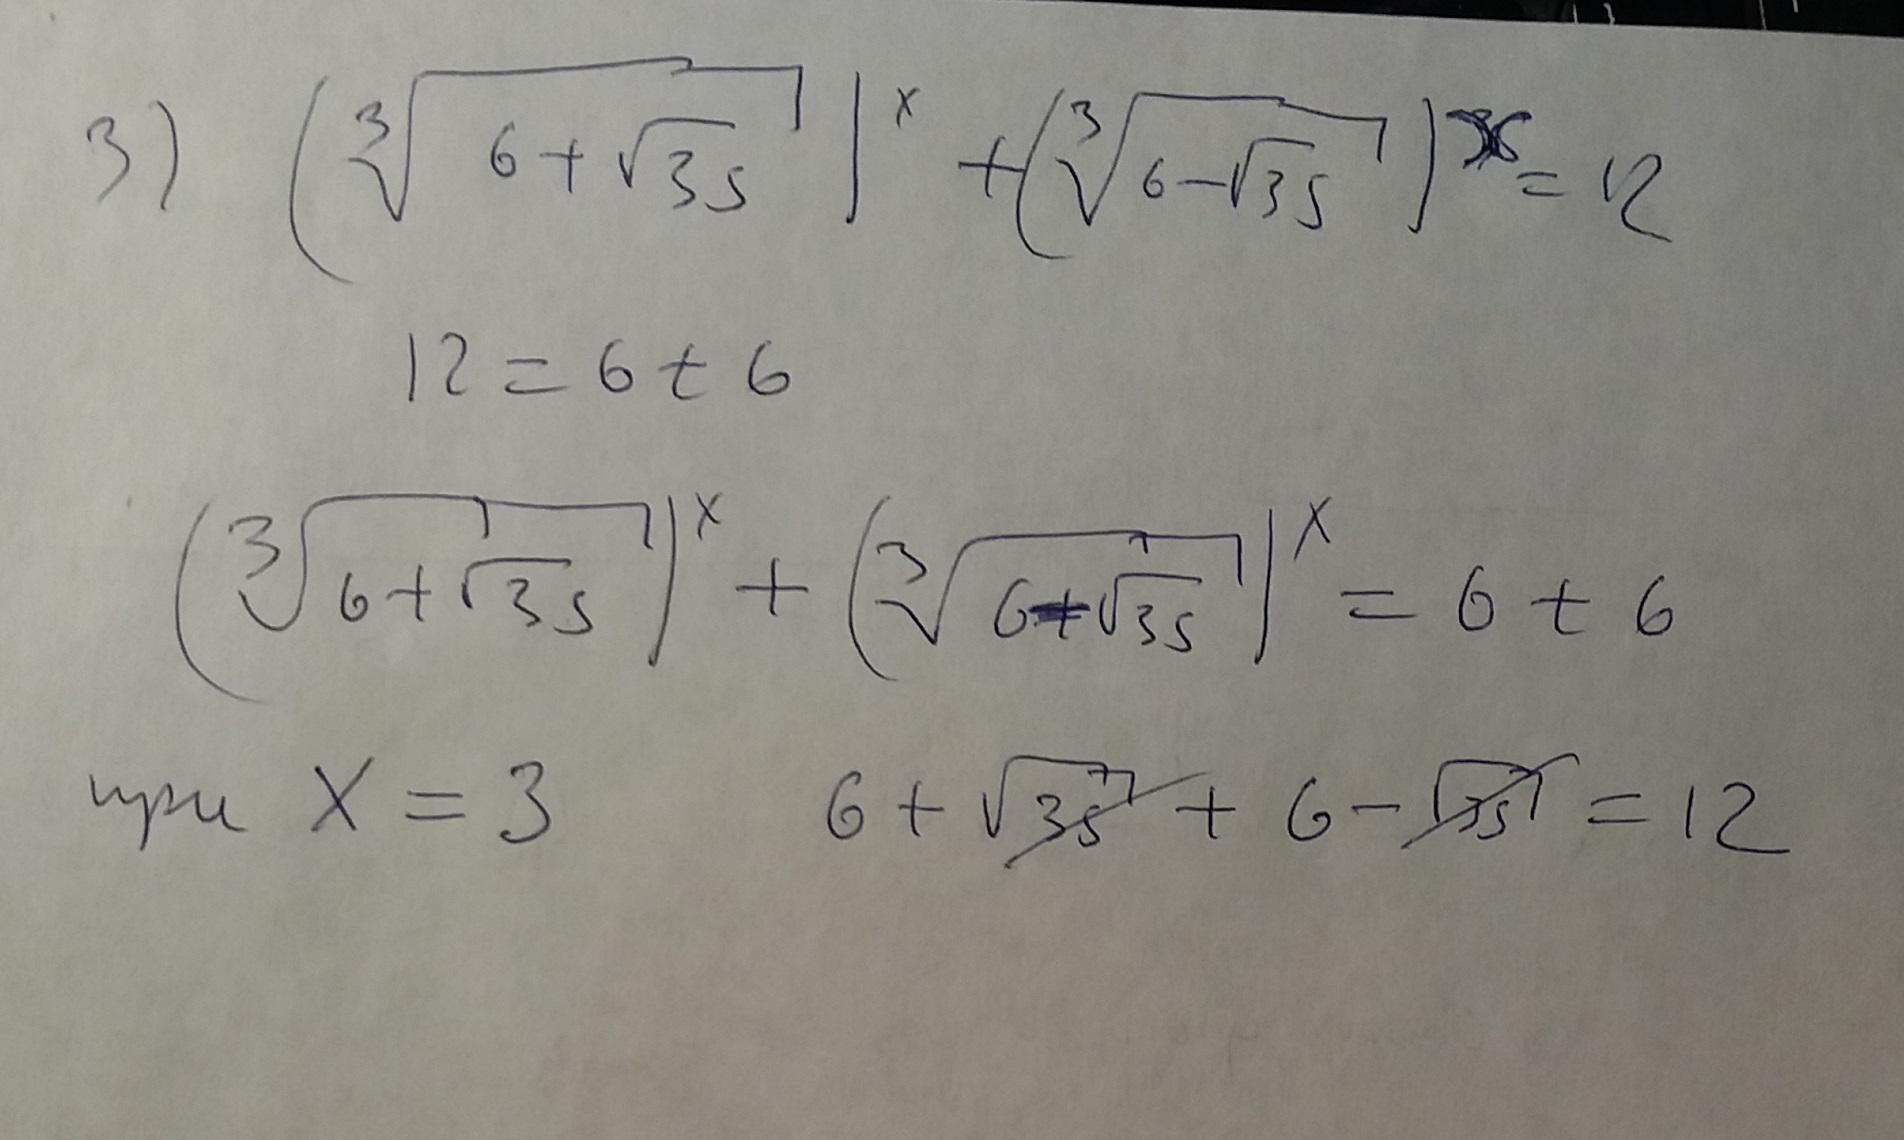 3) (∛(6+√35))^x + (∛(6-√35))^x = 12
12 = 6 + 6
(∛(6+√35))^x + (∛(6-√35))^x = 6 + 6
при x = 3 6 + √35 + 6 - √35 = 12